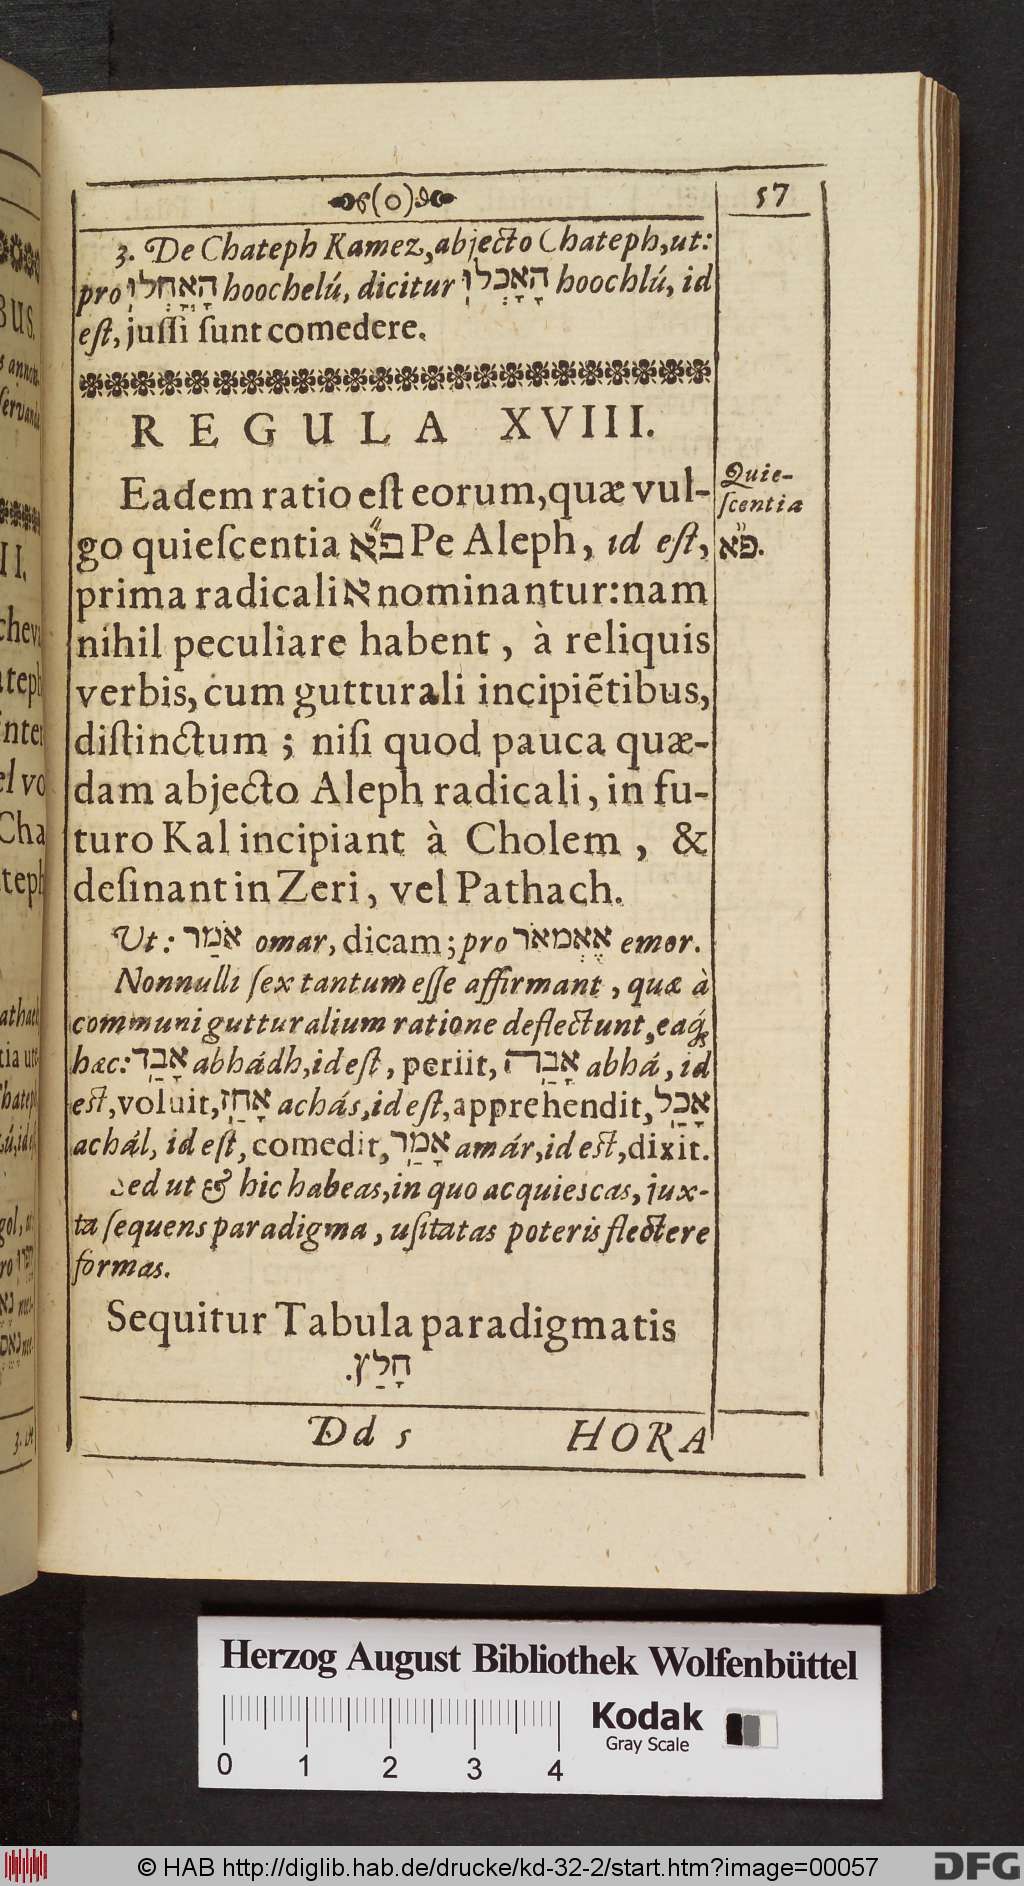 (o) 57
3. De Chateph Kamez, abjecto Chateph, ut:
pro הָאֳחְלוּ hoochelú, dicitur הָאָכְלוּ hoochlú, id
eſt, juſſi ſunt comedere.
REGULA XVIII.
Eadem ratio eſt eorum, quæ vul-
go quieſcentia פ״א Pe Aleph, id eſt,
prima radicali א nominantur: nam
nihil peculiare habent, à reliquis
verbis, cum gutturali incipiẽtibus,
diſtinctum; niſi quod pauca quæ-
dam abjecto Aleph radicali, in fu-
turo Kal incipiant à Cholem, &
deſinant in Zeri, vel Pathach.
Ut: אֹמַר omar, dicam; pro אֶאְמאֹר emor.
Nonnulli ſex tantum eſſe affirmant, quæ à
communi gutturalium ratione deflectunt, eaq́;
hæc: אָבַד abhádh, id eſt, periit, אָבַה abhá, id
est, voluit, אָחַז achás, id eſt, apprehendit, אָכַל
achál, id eſt, comedit, אָמַר amár, id est, dixit.
Sed ut & hic habeas, in quo acquiescas, jux-
ta ſequens paradigma, uſitatas poteris flectere
formas.
Sequitur Tabula paradigmatis
חָלַץ.
Dd 5 HORA
Quie-
ſcentia
פ״א.
BUS.
II.
3. Ut
Herzog August Bibliothek Wolfenbüttel
0 1 2 3 4
Kodak
Gray Scale
© HAB http://diglib.hab.de/drucke/kd-32-2/start.htm?image=00057
DFG